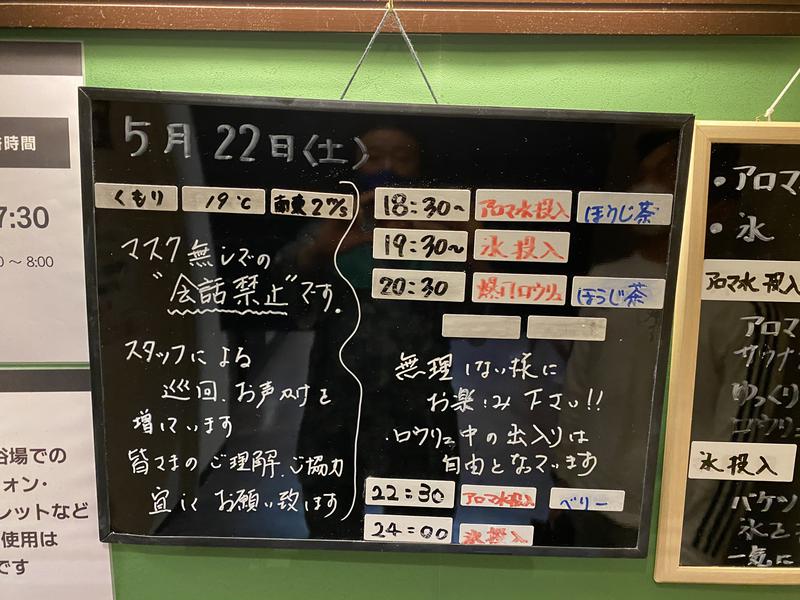 5月22日(土)
くもり 19℃ 南東2m/s
マスク無しでの
"会話禁止"です.
スタッフによる
巡回.お声かけを
増しています
皆さまのご理解.ご協力
宜しくお願い致します
18:30~ アロマ水投入 ほうじ茶
19:30~ 氷投入
20:30 爆風ロウリュ ほうじ茶
無理しない様に
お楽しみ下さい!!
.ロウリュ中の出入りは
自由となっています
22:30 アロマ水投入 ベリー
24:00 氷投入
時間
7:30
0~8:00
浴場での
ォン・
レットなど
使用は
です
・アロマ
・氷
アロマ水投入
アロマ
サウナ
ゆっくり
ロウリュ
氷投入
バケツ
氷を
一気に